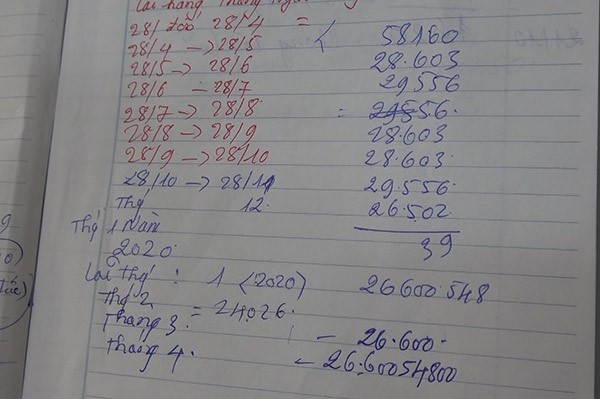 Lãi hàng tháng
28/ đến 28/4 = 58160
28/4 → 28/5 28.603
28/5 → 28/6 29556
28/6 – 28/7 = 29556.
28/7 → 28/8 28.603
28/8 → 28/9 28.603.
28/9 → 28/10 29.556.
28/10 → 28/11 26.502.
Thg 12. 39
Thg 1 Năm
2020.
Lãi Thg : 1 (2020) 26600.548
Thg 2 = 24026.
Tháng 3. – 26.600.
Tháng 4. – 26.60054800